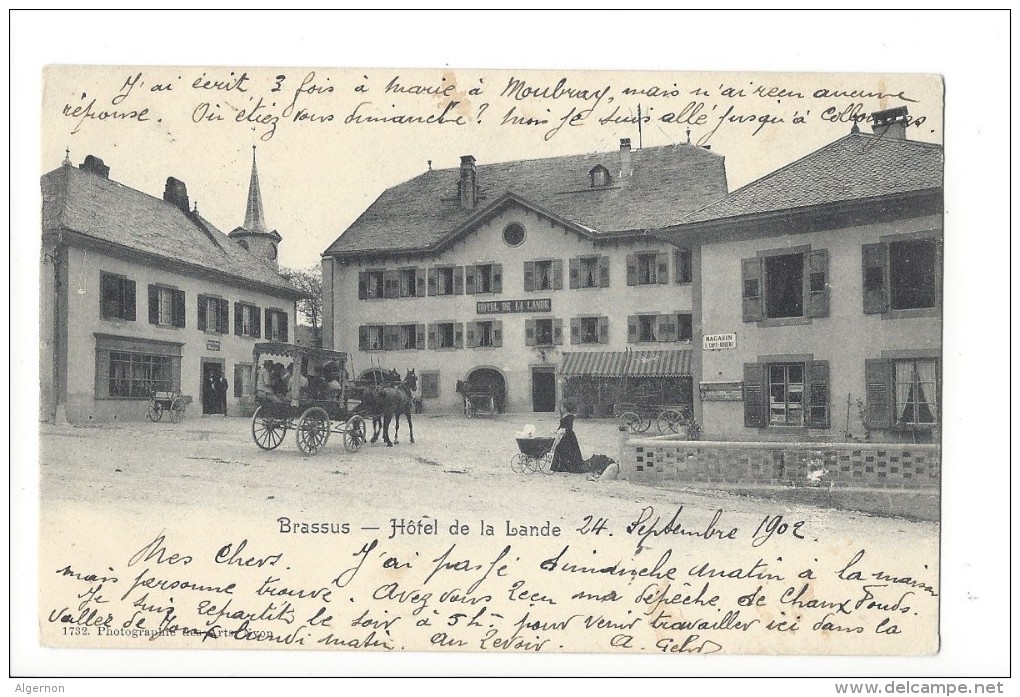 J'ai écrit 3 fois à Marie à Moubray, mais n'ai reçu aucune
réponse. Où étiez vous dimanche? Moi je suis allé jusqu'à
HÔTEL DE LA LANDE
MAGASIN
Brassus — Hôtel de la Lande 24. Septembre 1902.
Mes Chers. J'ai passé dimanche matin à la maison
mais personne trouvé. Avez vous reçu ma dépêche de Chaux de Fonds.
Je suis repartit le soir à 5h- pour venir travailler ici dans la
vallée de Joux lundi matin. Au revoir. A.
1732. Photographie des Arts, Lyon
Algernon
delcampe.net